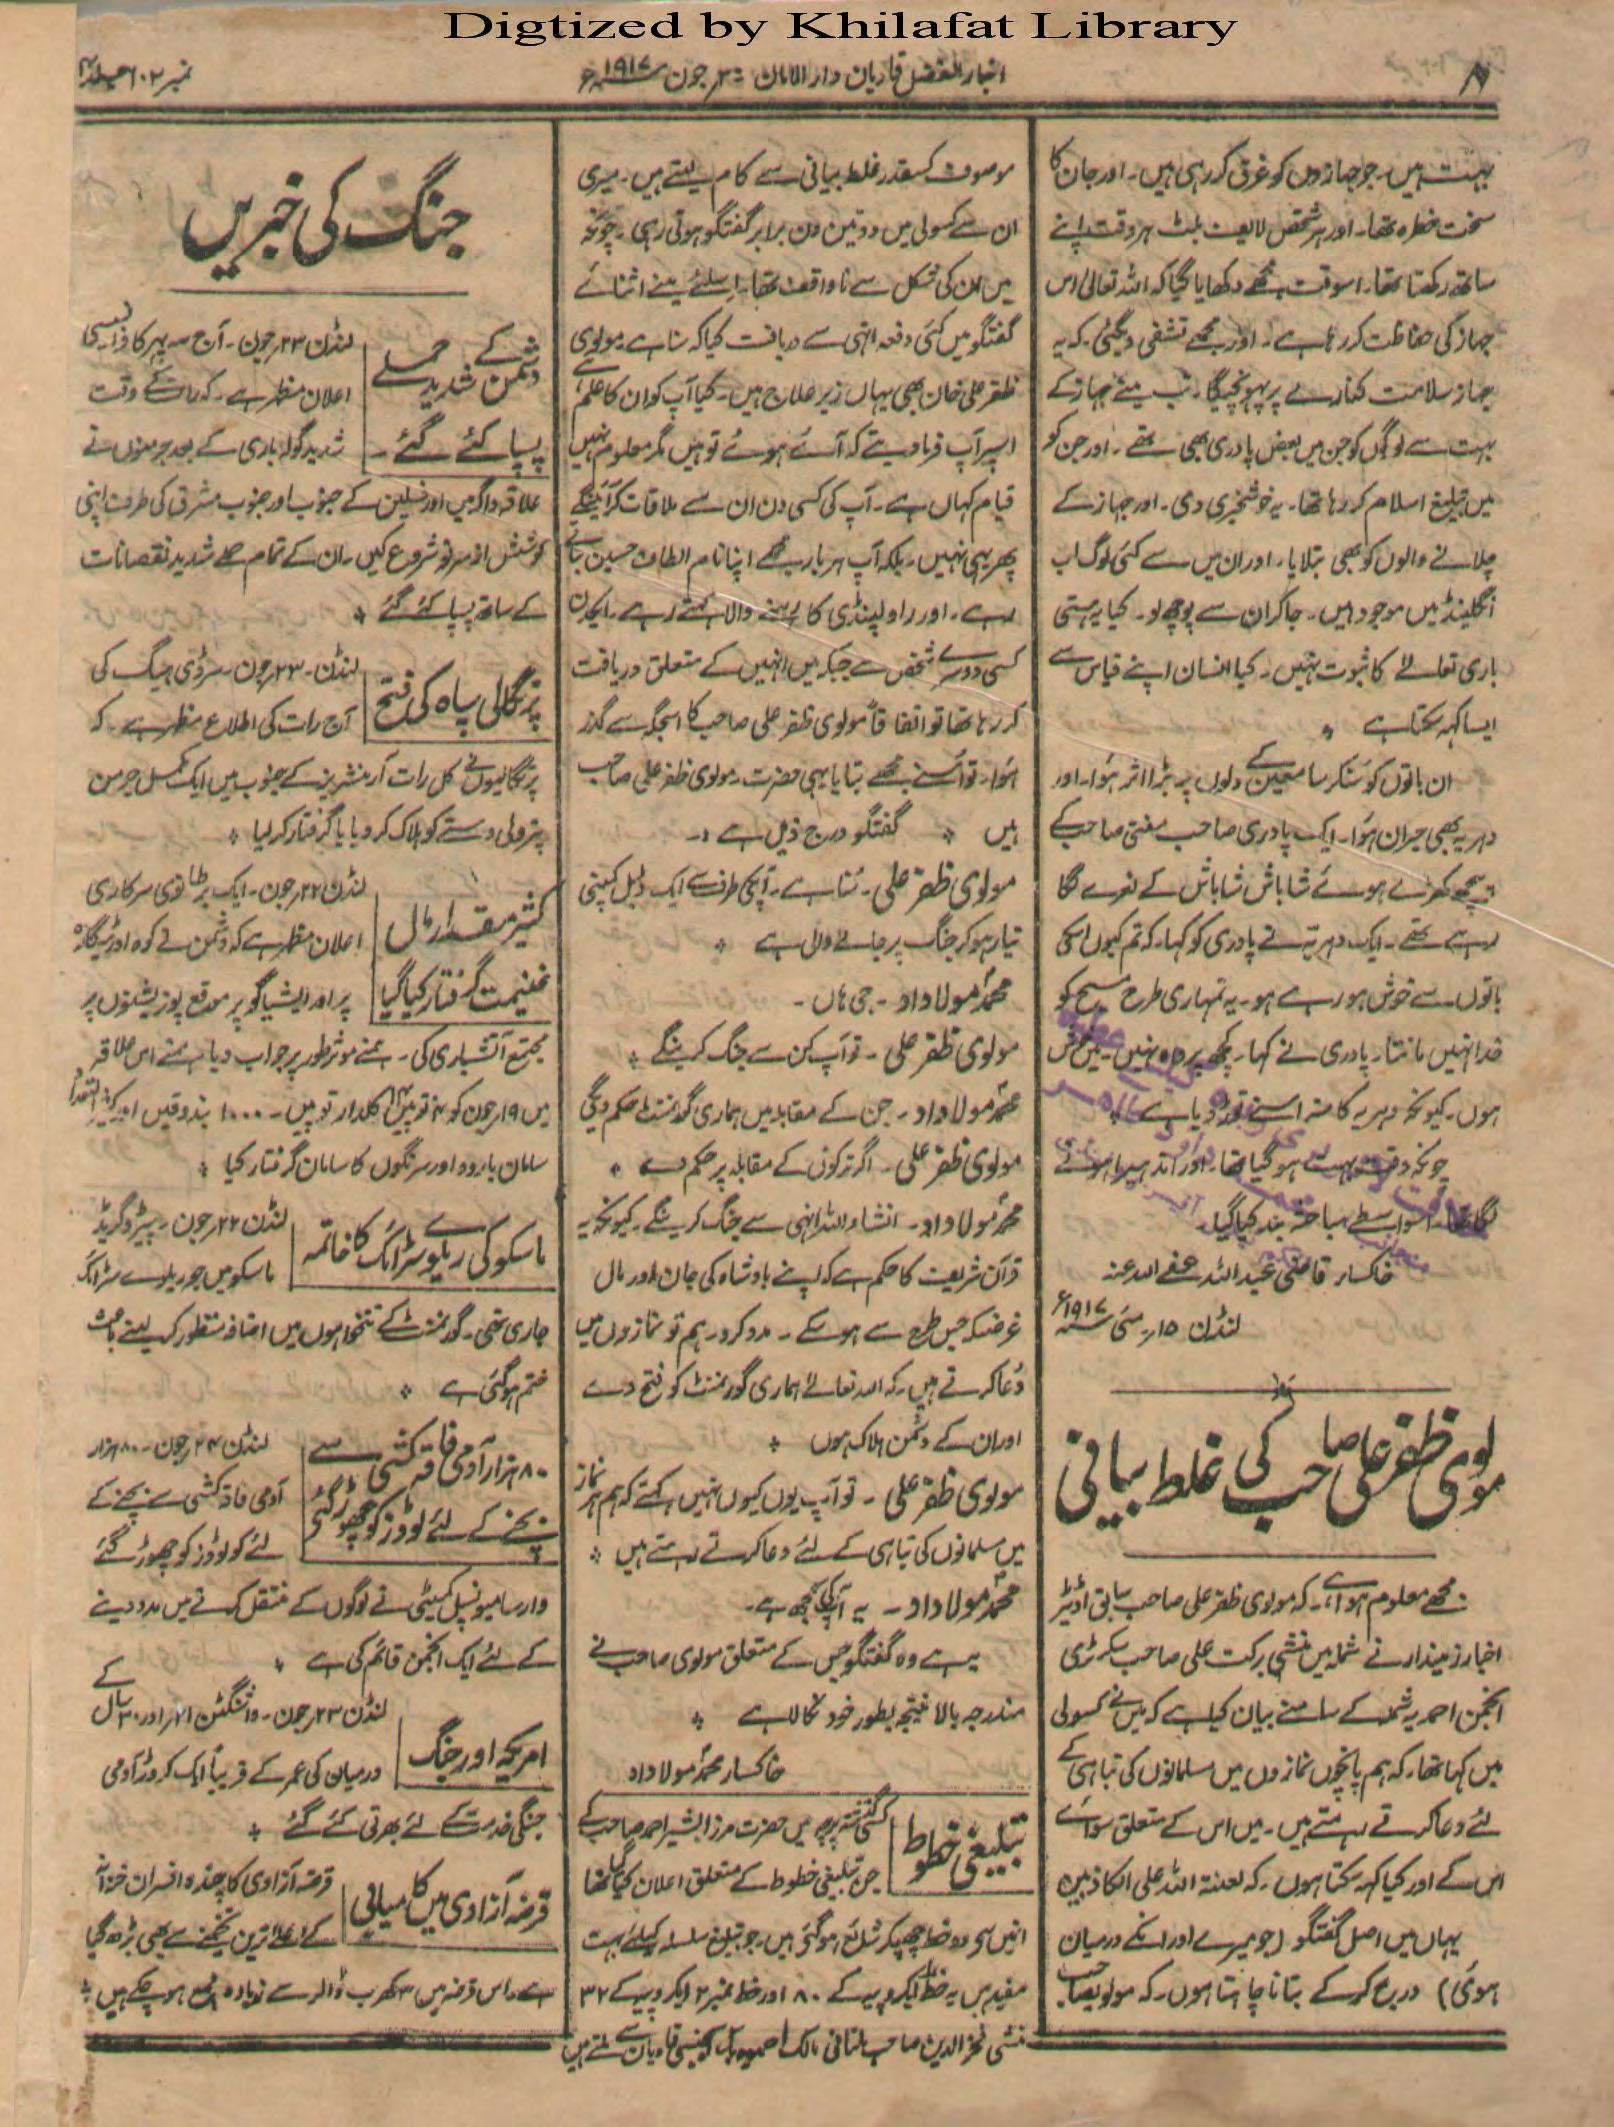 Digtized by Khilafat Library
۸
اخبار الفضل قادیان دار الامان - ۳۰ر جون ۱۹۱۷ء
نمبر ۱۰۲ جلد ۴
بہت ہیں۔ جو جہازوں کو غرق کر رہی ہیں۔ اور جان کا
سخت خطرہ تھا۔ اور ہر شخص لائیف بلٹ ہر وقت اپنے
ساتھ رکھتا تھا۔ اسوقت مجھے دکھایا گیا کہ اللہ تعالیٰ اس
جہاز کی حفاظت کر رہا ہے۔ اور مجھے تشفی دیگئی۔ کہ یہ
جہاز سلامت کنارے پر پہونچیگا۔ تب مینے جہاز کے
بہت سے لوگوں کو جن میں بعض پادری بھی تھے۔ اور جن کو
میں تبلیغ اسلام کر رہا تھا۔ یہ خوشخبری دی۔ اور جہاز کے
چلانے والوں کو بھی بتلایا۔ اور ان میں سے کئی لوگ اب
انگلینڈ میں موجود ہیں۔ جا کر ان سے پوچھ لو۔ کیا یہ ہستی
باری تعالےٰ کا ثبوت نہیں۔ کیا انسان اپنے قیاس سے
ایسا کہہ سکتا ہے
ان باتوں کو سنکر سامعین کے دلوں پر بڑا اثر ہوا۔ اور
دہریہ بھی حیران ہوا۔ ایک پادری صاحب مفتی صاحب کے
پیچھے کھڑے ہوئے شاباش شاباش کے نعرے لگا
رہے تھے۔ ایک دہریہ نے پادری کو کہا۔ کہ تم کیوں اسکی
باتوں سے خوش ہو رہے ہو۔ یہ تمہاری طرح مسیح کو
خدا نہیں مانتا۔ پادری نے کہا۔ کچھ پرواہ نہیں۔ میں خوش
ہوں۔ کیونکہ دہریہ کا منہ اسنے توڑ دیا ہے
چونکہ وقت بہت ہو گیا تھا۔ اور اندھیرا ہونے
لگا تھا۔ اسواسطے مباحثہ بند کیا گیا۔
خاکسار قاضی عبد اللہ عفے اللہ عنہ
لنڈن ۱۵ر مئی ۱۹۱۷ء
مولوی ظفر علی صاحب کی غلط بیانی
مجھے معلوم ہوا ہے۔ کہ مولوی ظفر علی صاحب سابق اڈیٹر
اخبار زمیندار نے شملہ میں منشی برکت علی صاحب سکرٹری
انجمن احمدیہ شملہ کے سامنے بیان کیا ہے کہ میں نے کسولی
میں کہا تھا۔ کہ ہم پانچوں نمازوں میں مسلمانوں کی تباہی کے
لئے دعا کرتے رہتے ہیں۔ میں اس کے متعلق سوائے
اس کے اور کیا کہہ سکتا ہوں۔ کہ لعنۃ اللہ علی الکاذبین
یہاں میں اصل گفتگو (جو میرے اور انکے درمیان
ہوئی) درج کر کے بتانا چاہتا ہوں۔ کہ مولویصاحب
موصوف کسقدر غلط بیانی سے کام لیتے ہیں۔ میری
ان سے کسولی میں دو تین دن برابر گفتگو ہوتی رہی۔ چونکہ
میں ان کی شکل سے ناواقف تھا۔ اسلئے مینے اثنائے
گفتگو میں کئی دفعہ انہی سے دریافت کیا کہ سنا ہے مولوی
ظفر علی خان بھی یہاں زیر علاج ہیں۔ کیا آپ کو ان کا علم ہے
اسپر آپ فرما دیتے کہ آئے ہوئے تو ہیں مگر معلوم نہیں
قیام کہاں ہے۔ آپ کی کسی دن ان سے ملاقات کرائینگے
پھر یہی نہیں۔ بلکہ آپ ہر بار مجھے اپنا نام الطاف حسین بتاتے
رہے۔ اور راولپنڈی کا رہنے والا کہتے رہے۔ ایکدن
کسی دوسرے شخص سے جبکہ میں انہیں کے متعلق دریافت
کر رہا تھا تو اتفاقاً مولوی ظفر علی صاحب کا اسجگہ سے گذر
ہوا۔ تو اسنے مجھے بتایا یہی حضرت۔ مولوی ظفر علی صاحب
ہیں گفتگو درج ذیل ہے :-
مولوی ظفر علی۔ سنا ہے۔ آپکی طرف سے ایک ڈبل کمپنی
تیار ہو کر جنگ پر جانے والی ہے
محمد مولا داد۔ جی ہاں۔
مولوی ظفر علی۔ تو آپ کن سے جنگ کرینگے
محمد مولا داد۔ جن کے مقابلہ میں ہماری گورنمنٹ حکم دیگی
مولوی ظفر علی۔ اگر ترکوں کے مقابلہ پر حکم دے
محمد مولا داد۔ انشاء اللہ انہی سے جنگ کرینگے۔ کیونکہ یہ
قرآن شریف کا حکم ہے کہ اپنے بادشاہ کی جان اور مال
غرضکہ جس طرح سے ہو سکے۔ مدد کرو۔ ہم تو نمازوں میں
دعا کرتے ہیں۔ کہ اللہ تعالےٰ ہماری گورنمنٹ کو فتح دے
اور ان کے دشمن ہلاک ہوں
مولوی ظفر علی۔ تو آپ یوں کیوں نہیں کہتے کہ ہم ہر نماز
میں مسلمانوں کی تباہی کے لئے دعا کرتے رہتے ہیں
محمد مولا داد۔ یہ آپکی سمجھ ہے۔
یہ ہے وہ گفتگو جس کے متعلق مولوی صاحب نے
مندرجہ بالا نتیجہ بطور خود نکالا ہے
خاکسار محمد مولا داد
تبلیغی خطوط
گذشتہ پرچہ میں حضرت مرزا بشیر احمد صاحب کے
جن تبلیغی خطوط کے متعلق اعلان کیا گیا تھا
انمیں سے دو خط چھپکر شائع ہو گئی ہیں۔ جو تبلیغ سلسلہ کیلئے بہت
مفید ہیں یہ خط ایکروپیہ کے ۸۰ اور خط نمبر ۲ ایکروپیہ کے ۳۲
منشی فخر الدین صاحب ملتانی مالک احمدیہ بک ایجنسی قادیان سے ملتے ہیں
جنگ کی خبریں
دشمن کے شدید حملے
پسپا کئے گئے۔
لنڈن ۲۳ر جون۔ آج سہ پہر کا فرانسیسی
اعلان مظہر ہے۔ کہ رات کے وقت
شدید گولہ باری کے بعد جرمنوں نے
علاقہ واگرمیں اور فلین کے جنوب اور جنوب مشرق کی طرف اپنی
کوشش از سر نو شروع کیں۔ ان کے تمام حملے شدید نقصانات
کے ساتھ پسپا کئے گئے
پرتگالی سپاہ کی فتح
لنڈن۔ ۲۳ر جون۔ سر ڈی ہیگ کی
آج رات کی اطلاع مظہر ہے۔ کہ
پرتگالیوں نے کل رات آرمنٹیرز کے جنوب میں ایک مکمل جرمن
پٹرولی دستے کو ہلاک کر دیا یا گرفتار کر لیا
کثیر مقدار مال
غنیمت گرفتار کیا گیا
لنڈن ۲۲ر جون۔ ایک برطانوی سرکاری
اعلان مظہر ہے کہ دشمن نے کوہ اورٹیگارہ
پر اور ایشیاگو پر موقع پوزیشنوں پر
مجتمع آتشباری کی۔ ہمنے موثر طور پر جواب دیا۔ ہمنے اس علاقہ
میں ۱۹ر جون کو توپیں کلدار توپیں۔ ۱۰۰۰ بندوقیں اور کثیر التعداد
سامان بارود اور سرنگوں کا سامان گرفتار کیا
ماسکو کی ریلوے سٹرائک کا خاتمہ
لنڈن ۲۲ر جون۔ پیٹروگریڈ
ماسکو میں جو ریلوے سٹرائک
جاری تھی۔ گورنمنٹ کے تنخواہوں میں اضافہ منظور کر لینے باعث
ختم ہو گئی ہے
۸۰ ہزار آدمی فاقہ کشی سے
بچنے کے لئے لوڈز کو چھوڑ گئے
لنڈن ۲۴ر جون۔ ۸۰ ہزار
آدمی فاقہ کشی سے بچنے کے
لئے کو لوڈز کو چھوڑ گئے
وارسا میونسپل کمیٹی نے لوگوں کے منتقل کرنے میں مدد دینے
کے لئے ایک انجمن قائم کی ہے
امریکہ اور جنگ
لنڈن ۲۳ر جون۔ واشنگٹن ۲۱ اور ۳۰ سال کے
درمیان کی عمر کے قریباً ایک کروڑ آدمی
جنگی خدمت کے لئے بھرتی کئے گئے
قرضہ آزادی میں کامیابی
قرضہ آزادی کا چندہ افسران خزانہ
کے اعلےٰ ترین تخمینے سے بھی بڑھ گیا
ہے۔ اس قرضہ میں ۳ کھرب ڈالر سے زیادہ جمع ہو چکے ہیں